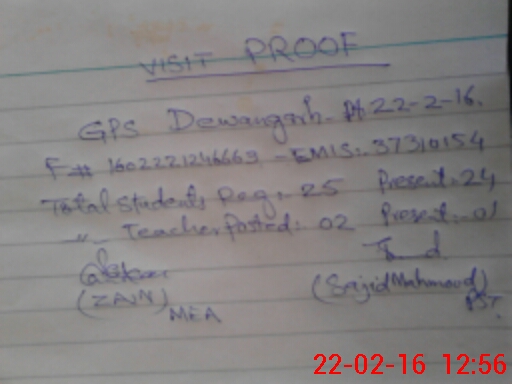 VISIT PROOF
GPS Dewangarh. Dt 22-2-16.
F# 1602221246669 - EMIS:. 37310154
Total Students Reg:- 25 Present:. 24
-"- Teacher Posted:- 02 Present:- 01
(ZAIN)
MEA
(Sajid Mahmood)
PST.
22-02-16 12:56